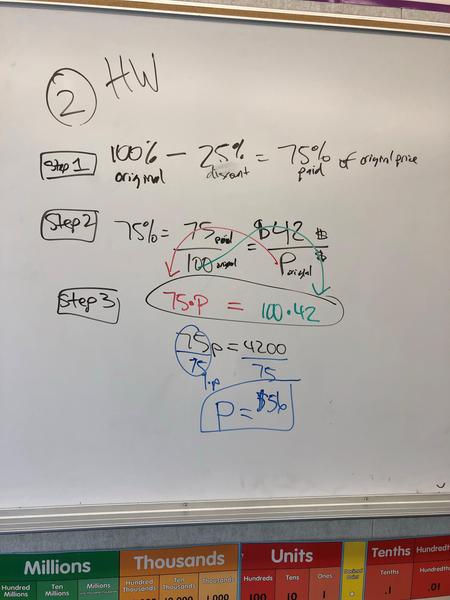 2 HW
Step 1 100% - 25% = 75% of original price
original discount paid
Step 2 75% = 75 paid / 100 original = $42 $ / P original $
Step 3 75·P = 100·42
75p = 4200
75 75
1·p
P = $56
Millions Thousands Units Decimal Point Tenths Hundredths
Hundred Millions Ten Millions Millions Hundred Thousands Ten Thousands Thousands Hundreds Tens Ones Tenths Hundredths
1,000 100 10 1 .1 .01